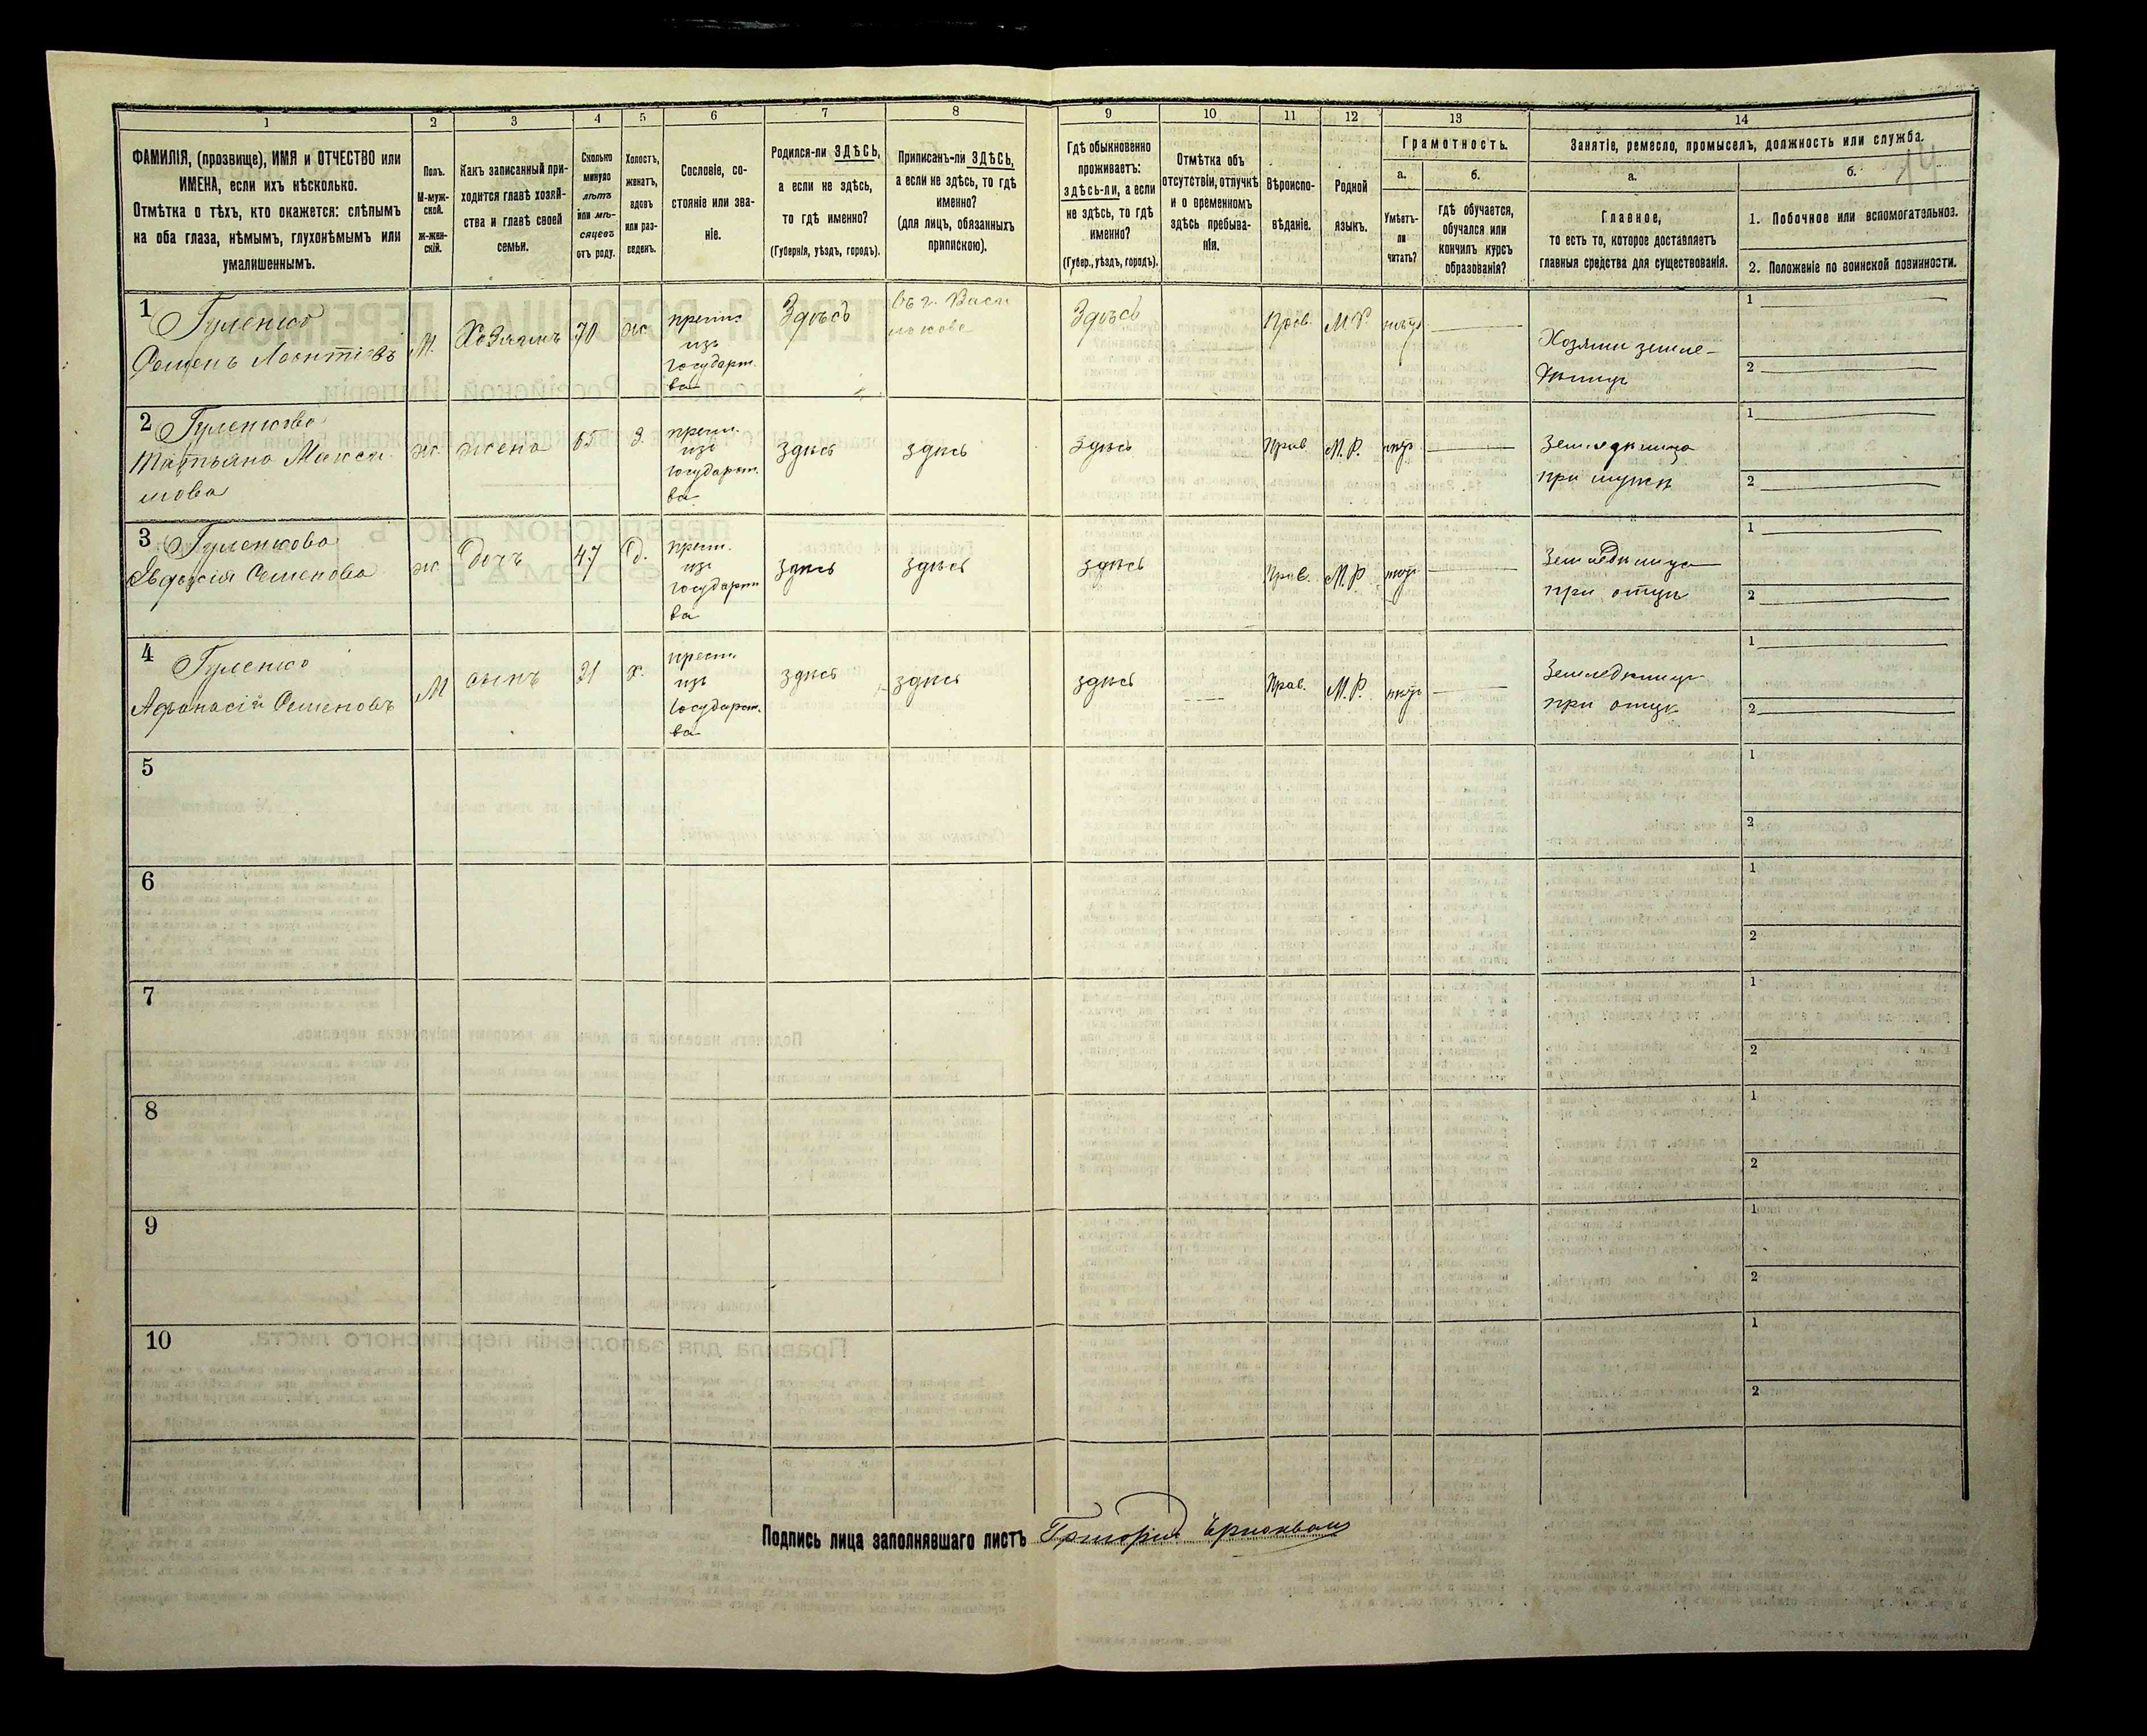 1
2
3
4
5
6
7
8
9
10
11
12
13
14
ФАМИЛІЯ, (прозвище), ИМЯ и ОТЧЕСТВО или
ИМЕНА, если ихъ нѣсколько.
Отмѣтка о тѣхъ, кто окажется: слѣпымъ
на оба глаза, нѣмымъ, глухонѣмымъ или
умалишеннымъ.
Полъ.
М-муж-
ской.
ж-жен-
скій.
Какъ записанный при-
ходится главѣ хозяй-
ства и главѣ своей
семьи.
Сколько
минуло
лѣтъ
или мѣ-
сяцевъ
отъ роду.
Холостъ,
женатъ,
вдовъ
или раз-
веденъ.
Сословіе, со-
стояніе или зва-
ніе.
Родился-ли ЗДѢСЬ,
а если не здѣсь,
то гдѣ именно?
(Губернія, уѣздъ, городъ).
Приписанъ-ли ЗДѢСЬ,
а если не здѣсь, то гдѣ
именно?
(для лицъ, обязанныхъ
припискою).
Гдѣ обыкновенно
проживаетъ:
здѣсь-ли, а если
не здѣсь, то гдѣ
именно?
(Губер., уѣздъ, городъ).
Отмѣтка объ
отсутствіи, отлучкѣ
и о временномъ
здѣсь пребыва-
ніи.
Вѣроиспо-
вѣданіе.
Родной
языкъ.
Грамотность.
а.
Умѣетъ-
ли
читать?
б.
гдѣ обучается,
обучался или
кончилъ курсъ
образованія?
Занятіе, ремесло, промыселъ, должность или служба.
а.
Главное,
то есть то, которое доставляетъ
главныя средства для существованія.
б.
1. Побочное или вспомогательноэ.
2. Положеніе по воинской повинности.
14
1
Гуленко
Семенъ Леонтіевъ
М.
Хозяинъ
70
ж
крест.
изъ
государст.
ва
Здѣсь
Въ г. Васи
лькове
Здѣсь
Прав.
М.Р.
нѣтъ
Хозяин земле-
делецъ
1
2
2
Гуленкова
Татьяна Макси
мова
ж.
жена
65
З.
крест.
изъ
государст.
ва
здѣсь
здѣсь
здѣсь
Прав
М.Р.
нѣт
Земледѣлица
при мужѣ
1
2
3
Гуленкова
Евдокія Семенова
ж
дочъ
47
д.
крест.
изъ
государст
ва
здѣсь
здѣсь
здѣсь
Прав.
М.Р.
нѣт
Земледѣлица
при отцѣ
1
2
4
Гуленко
Афанасій Семеновъ
М
сынъ
21
х.
крест.
изъ
государст.
ва
здѣсь
здѣсь
здѣсь
Прав.
М.Р.
нѣт
Земледѣлецъ
при отцѣ
1
2
5
1
2
6
1
2
7
1
2
8
1
2
9
1
2
10
1
2
Подпись лица заполнявшаго листъ Григорій